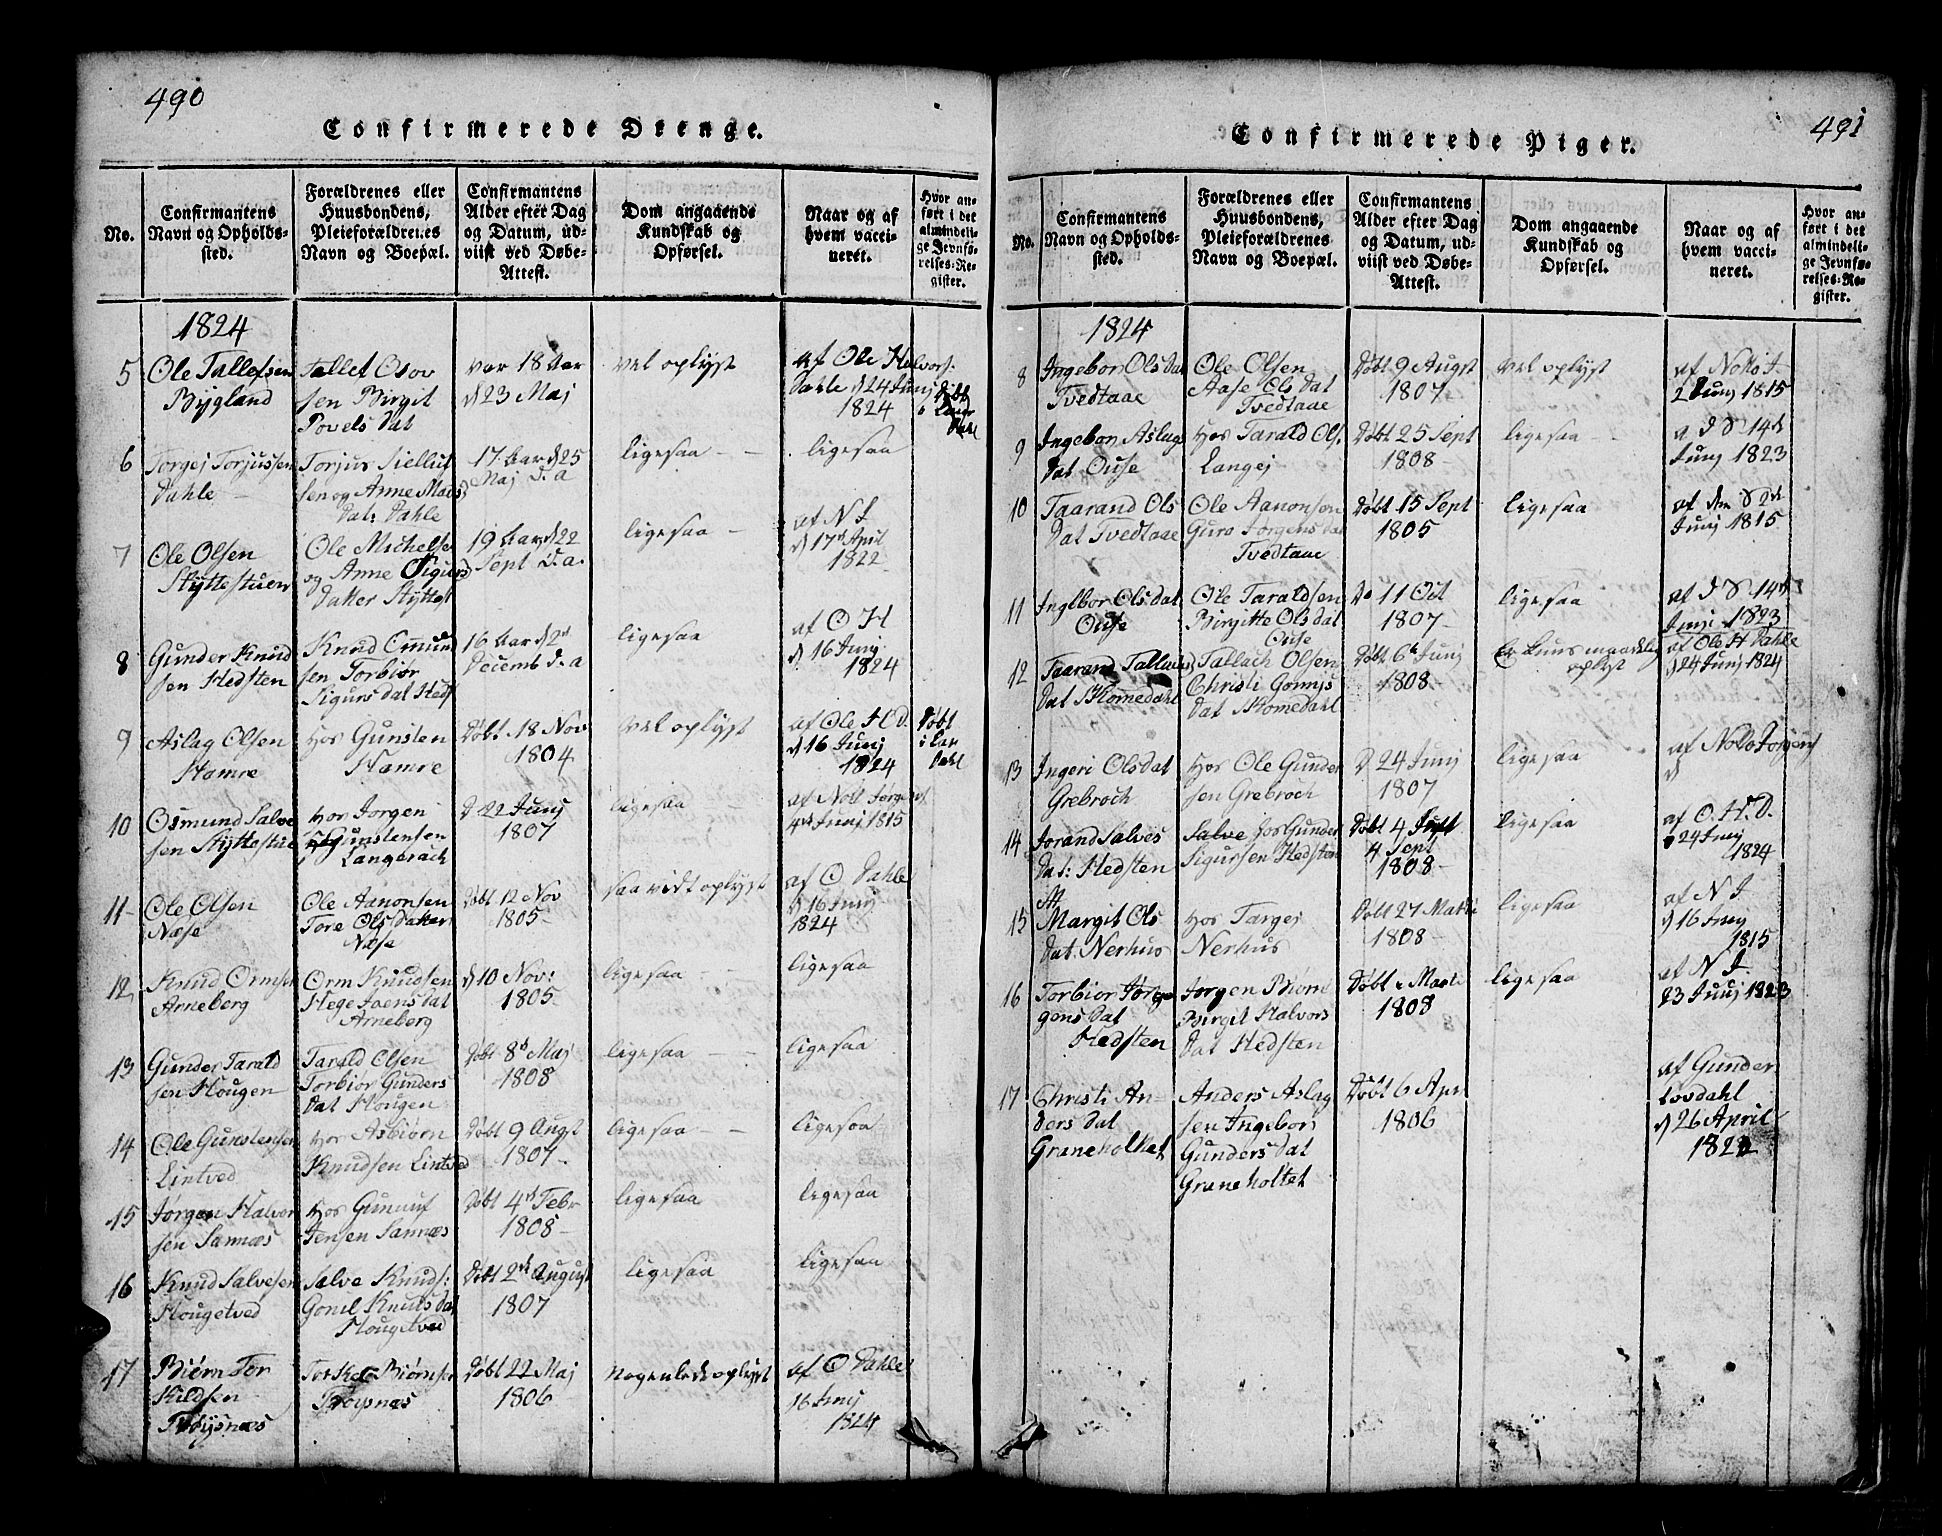 490
Confirmerede Drenge.
No.
Confirmantens
Navn og Opholds-
sted.
Forældrenes eller
Huusbondens,
Pleieforældrenes
Navn og Boepæl.
Confirmantens
Alder efter Dag
og Datum, ud-
viist ved Døbe-
Attest.
Dom angaaende
Kundskab og
Opførsel.
Naar og af
hvem vacci-
neret.
Hvor an-
ført i det
almindeli-
ge Jevnfø-
relses-Re-
gister.
1824
5
Ole Tallefsen
Bygland
Tallef Osov
sen Birgit
Povels Dat
var 18 Aar
d 23 Maj
vel oplyst
af Ole Halvors.
Dahle d 24 Junj
1824
Døbt
i Laur
Dahl
6
Torgej Torjussen
Dahle
Torjus Sielluf
sen og Anne Mads
Dat: Dahle
17 Aar d 25
Maj d. a
ligesaa
ligesaa
7
Ole Olsen
Skyttestuen
Ole Michelse
og Anne Sigurs
Datter Skyttest
19 Aar d 22
Sept d. a.
ligesaa
af N J
d 17d April
1822
8
Gunder Knud
sen Hedsten
Knud Omund
sen Torbiør
Sigurs dat Heds
16 Aar d 2d
Decemb d. a
ligesaa
af O H
d 16 Junj
1824
9
Aslag Olsen
Hamre
Hos Gunsten
Hamre
Døbt 18 Nov
1804
vel oplyst
af Ole H D.
d 16 Junj
1824
Døbt
i Lar
Dahl
10
Osmund Salve
sen Skyttestue
Hos Jorgen
Gunstensen
Langerach
D 22 Junj
1807
ligesaa
af Nols Jørgens
4d Junj 1815
11
Ole Olsen
Næse
Ole Aanonsen
Tore Ols Datter
Næse
Døbt 12 Nov
1805
saavidt oplyst
af O Dahle
d 16 Junj
1824
12
Knud Ormsen
Arneberg
Orm Knudsen
Hege Joens dat
Arneberg
d 10 Nov:
1805
ligesaa
ligesaa
13
Gunder Tarald
sen Hougen
Tarald Olsen
Torbiør Gunders
Dat Hougen
Døbt 8d Maj
1808
ligesaa
ligesaa
14
Ole Gunstensen
Lintved
Hos Asbiørn
Knudsen Lintved
Døbt 9 Augst
1807
ligesaa
ligesaa
15
Jørgen Halvor
sen Sannæs
Hos Gunuuf
Jensen Sannæs
Døbt 4d Febr
1808
ligesaa
ligesaa
16
Knud Salvesen
Hougetved
Salve Knuds:
Gonil Knuds dat
Hougetved
Døbt 2d August
1807
ligesaa
ligesaa
17
Biørn Tor
Kildsen
Trøysnæs
Torkel Biørnsen
Trøysnæs
Døbt 22 Maj
1806
Nogenledes oplyst
af O Dahle
16 Junj
1824
491
Confirmerede Piger.
No.
Confirmantens
Navn og Opholds-
sted.
Forældrenes eller
Huusbondens,
Pleieforældrenes
Navn og Boepæl.
Confirmantens
Alder efter Dag
og Datum, ud-
viist ved Døbe-
Attest.
Dom angaaende
Kundskab og
Opførsel.
Naar og af
hvem vacci-
neret.
Hvor an-
ført i det
almindeli-
ge Jevnfø-
relses-Re-
gister.
1824
8
Ingebor Ols Dat
Tvedtaae
Ole Olsen
Aase Ols Dat
Tvedtaae
Døbt 9 Augst
1807
vel oplyst
af Nols J.
2 Junj 1815
9
Ingebor Aslags
Dat Ouse
Hos Tarald Ols.
Langej
Døbt 25 Sept
1808
ligesaa
14d
Junj 1823
10
Taarand Ols
Dat Tvedtaae
Ole Aanonsen
Guro Jørgens dat
Tvedtaae
Døbt 15 Sept
1805
ligesaa
af dem S 2d
Junj 1815
11
Ingebor Ols dat
Ouse
Ole Taraldsen
Birgitte Ols dat
Ouse
D 11 Oct
1807
ligesaa
af J S 14d
Junj 1823
12
Taarand Tallachs
Dat Blomedahl
Tallach Olsen
Christi Gonnys
Dat Blomedahl
Døbt 6d Junj
1808
Er kuns maadelig
oplyst
af Ole H Dahle
d 24 Junj 1824
13
Ingeri Ols dat
Grebroch
Hos Ole Gunder
sen Grebroch
D 24 Junj
1807
ligesaa
af Nols Jorgens
d
14
Jorand Salves
Dat: Hedsten
Salve Hos Gunder
Sigursen Hedsten
Døbt 4
4 Sept
1808
ligesaa
af O. H. D.
24 Junj
1824
15
Margit Ols
Dat. Nerhus
Hos Targej
Nerhus
Døbt 27 Marti
1808
ligesaa
af N J
d 16 Junj
1815
16
Torbior Jørge
gens Dat
Hedsten
Jørgen Biørn
Birgit Halvors
Dat Hedsten
Døbt Marti
1808
ligesaa
af N J.
23 Junj 1823
17
Christi An-
ders dat
Graneholtet
Anders Aslag
sen Ingebor
Gunders Dat
Graneholtet
Døbt 6 Apr
1806
af Gunder
Lovdahl
d 26 April